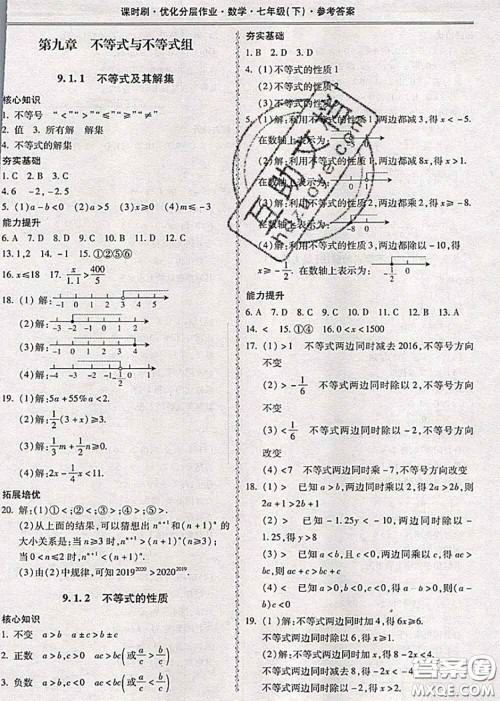 课时刷·优化分层作业·数学·七年级(下)·参考答案
第九章 不等式与不等式组
9.1.1 不等式及其解集
核心知识
1. 不等号 “<”“>”“≤”“≥”“≠”
2. 值 3. 所有解 解集
4. 不等式的解集
夯实基础
1. C 2. B 3. C
4. 6 -2,-2.5
5. (1)a-b<0 (2)a>5 (3)x≥0 (4)m≤-3
能力提升
6. A 7. D 8. D 9. C 10. A 11. D 12. D
13. 1,2 14. -1 15. ①②⑤⑥
16. x≤18 17. x/1.1>400/5
18. (1)解:
-1 0 1 2 3 4
(2)解:
-4 -3 -2 -1 0 1
(3)解:
-1 0 1 2 3 4 5
(4)解:
-3 -2 -1 0 1 2
19. (1)解:5a+55%a<2.
(2)解:1/2(3+x)>3.
(3)解:1/3m+1/2n≥5.
(4)解:2x-1/4x<0.
拓展培优
20. 解:(1)①<;②<;③>;④>;⑤>.
(2)从上面的结果,可以猜想出 nⁿ⁺¹ 和 (n+1)ⁿ 的
大小关系是:当 nⁿ⁺¹>(n+1)ⁿ(n≥3);
当 0<n≤2 时,nⁿ⁺¹<(n+1)ⁿ.
(3)由(2)中规律,可知 2019²⁰²⁰>2020²⁰¹⁹.
9.1.2 不等式的性质
核心知识
1. 不变 a>b a±c>b±c
2. 正数 a>b,c>0 ac>bc(或a/c>b/c)
3. 负数 a>b,c<0 ac<bc(或a/c<b/c)
夯实基础
4. (1)不等式的性质1
(2)不等式的性质2
5. (1)解:利用不等式的性质1,两边都减3,得 x<-5.
在数轴上表示为:
(2)解:利用不等式的性质1,两边都减8x,得 x>1.
在数轴上表示为:
(3)解:利用不等式性质2,两边都乘2,得 x>-8.
在数轴上表示为:
(4)解:利用不等式性质3,两边都除以-10,得
x≥-1/2. 在数轴上表示为:
能力提升
6. A 7. D 8. A 9. C 10. B 11. C 12. A 13. A
14. < 15. ①④ 16. 0<x<1500
17. (1)>1 不等式两边同时减去2016,不等号方向
不变
(2)>-1/6 不等式两边同时除以2,不等号方向不变
(3)<1/6 不等式两边同时除以-2,不等号方向
改变
(4)<7 不等式两边同时乘-7,不等号方向改变
18. (1)> 已知 a>b,两边同时乘2,得 2a>2b,则
2a+1>2b+1
(2)< 已知-1.25y<-10,两边同时除以
-1.25,得 y>8.
(3)> 已知 a>b,且 c<0,两边同乘c,得 ac<
bc,则 ac+c<bc+c
(4)< 已知 a>0,b<0,c<0,则 a-b>0,得
(a-b)c<0.
19. (1)解:不等式两边同时加4,得6x>4.
不等式两边同时除以6,得 x>2/3.
(2)解:不等式两边同时减去8,得-2x<-4.
不等式两边同时除以-2,得 x>2.
答案圈
MXQE.COM